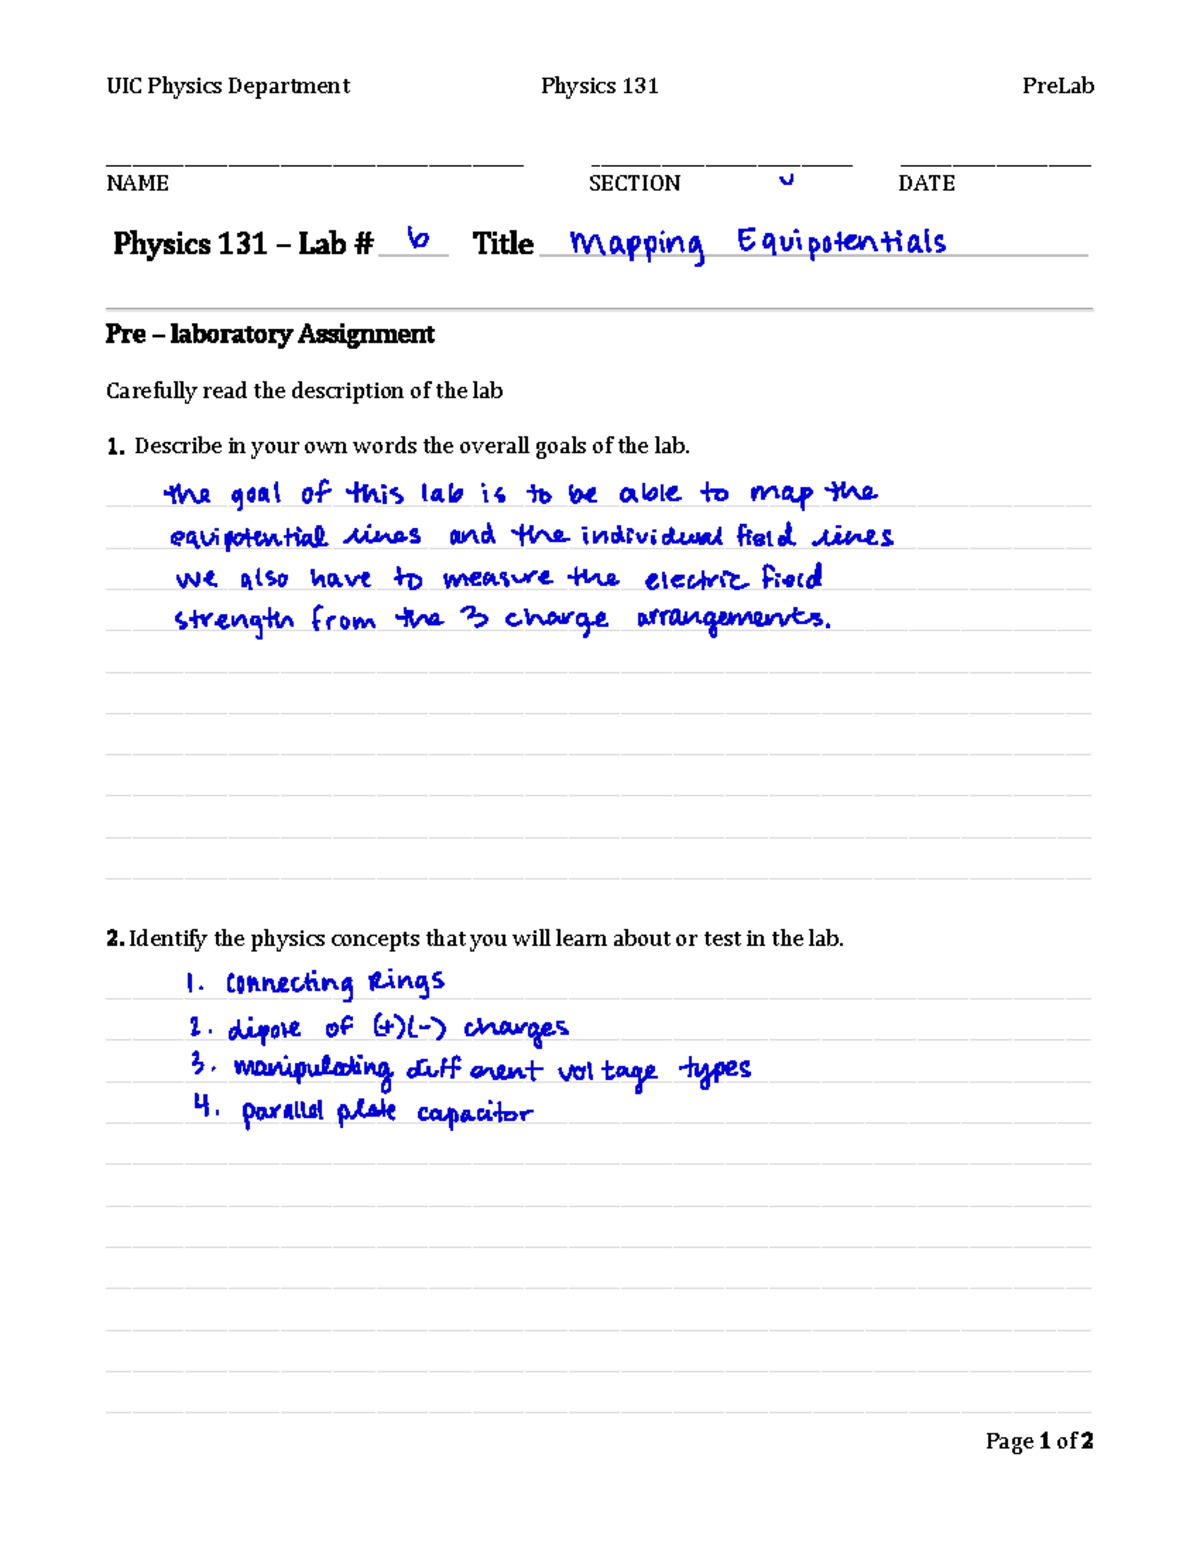 UIC Physics Department Physics 131 PreLab
NAME SECTION DATE
Physics 131 – Lab # 6 Title Mapping Equipotentials
Pre – laboratory Assignment
Carefully read the description of the lab
1. Describe in your own words the overall goals of the lab.
the goal of this lab is to be able to map the
equipotential lines and the individual field lines
we also have to measure the electric field
strength from the 3 charge arrangements.
2. Identify the physics concepts that you will learn about or test in the lab.
1. Connecting Rings
2. dipole of (+)(-) charges
3. manipulating different voltage types
4. parallel plate capacitor
Page 1 of 2